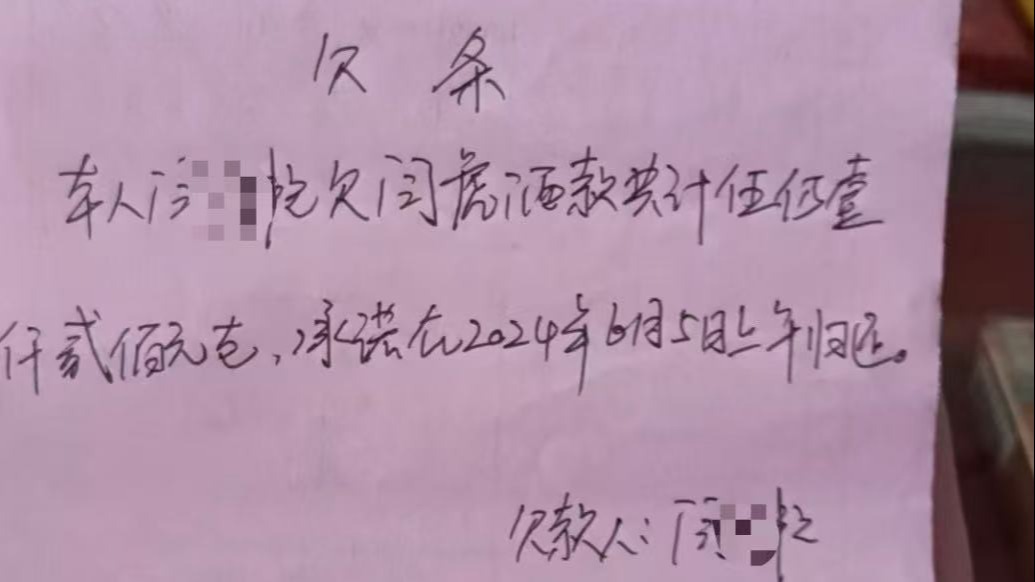 欠 条
本人闫欠闫虎酒款共计伍仟壹
仟贰佰元整,承诺在2024年6月5日上午归还。
欠款人:闫